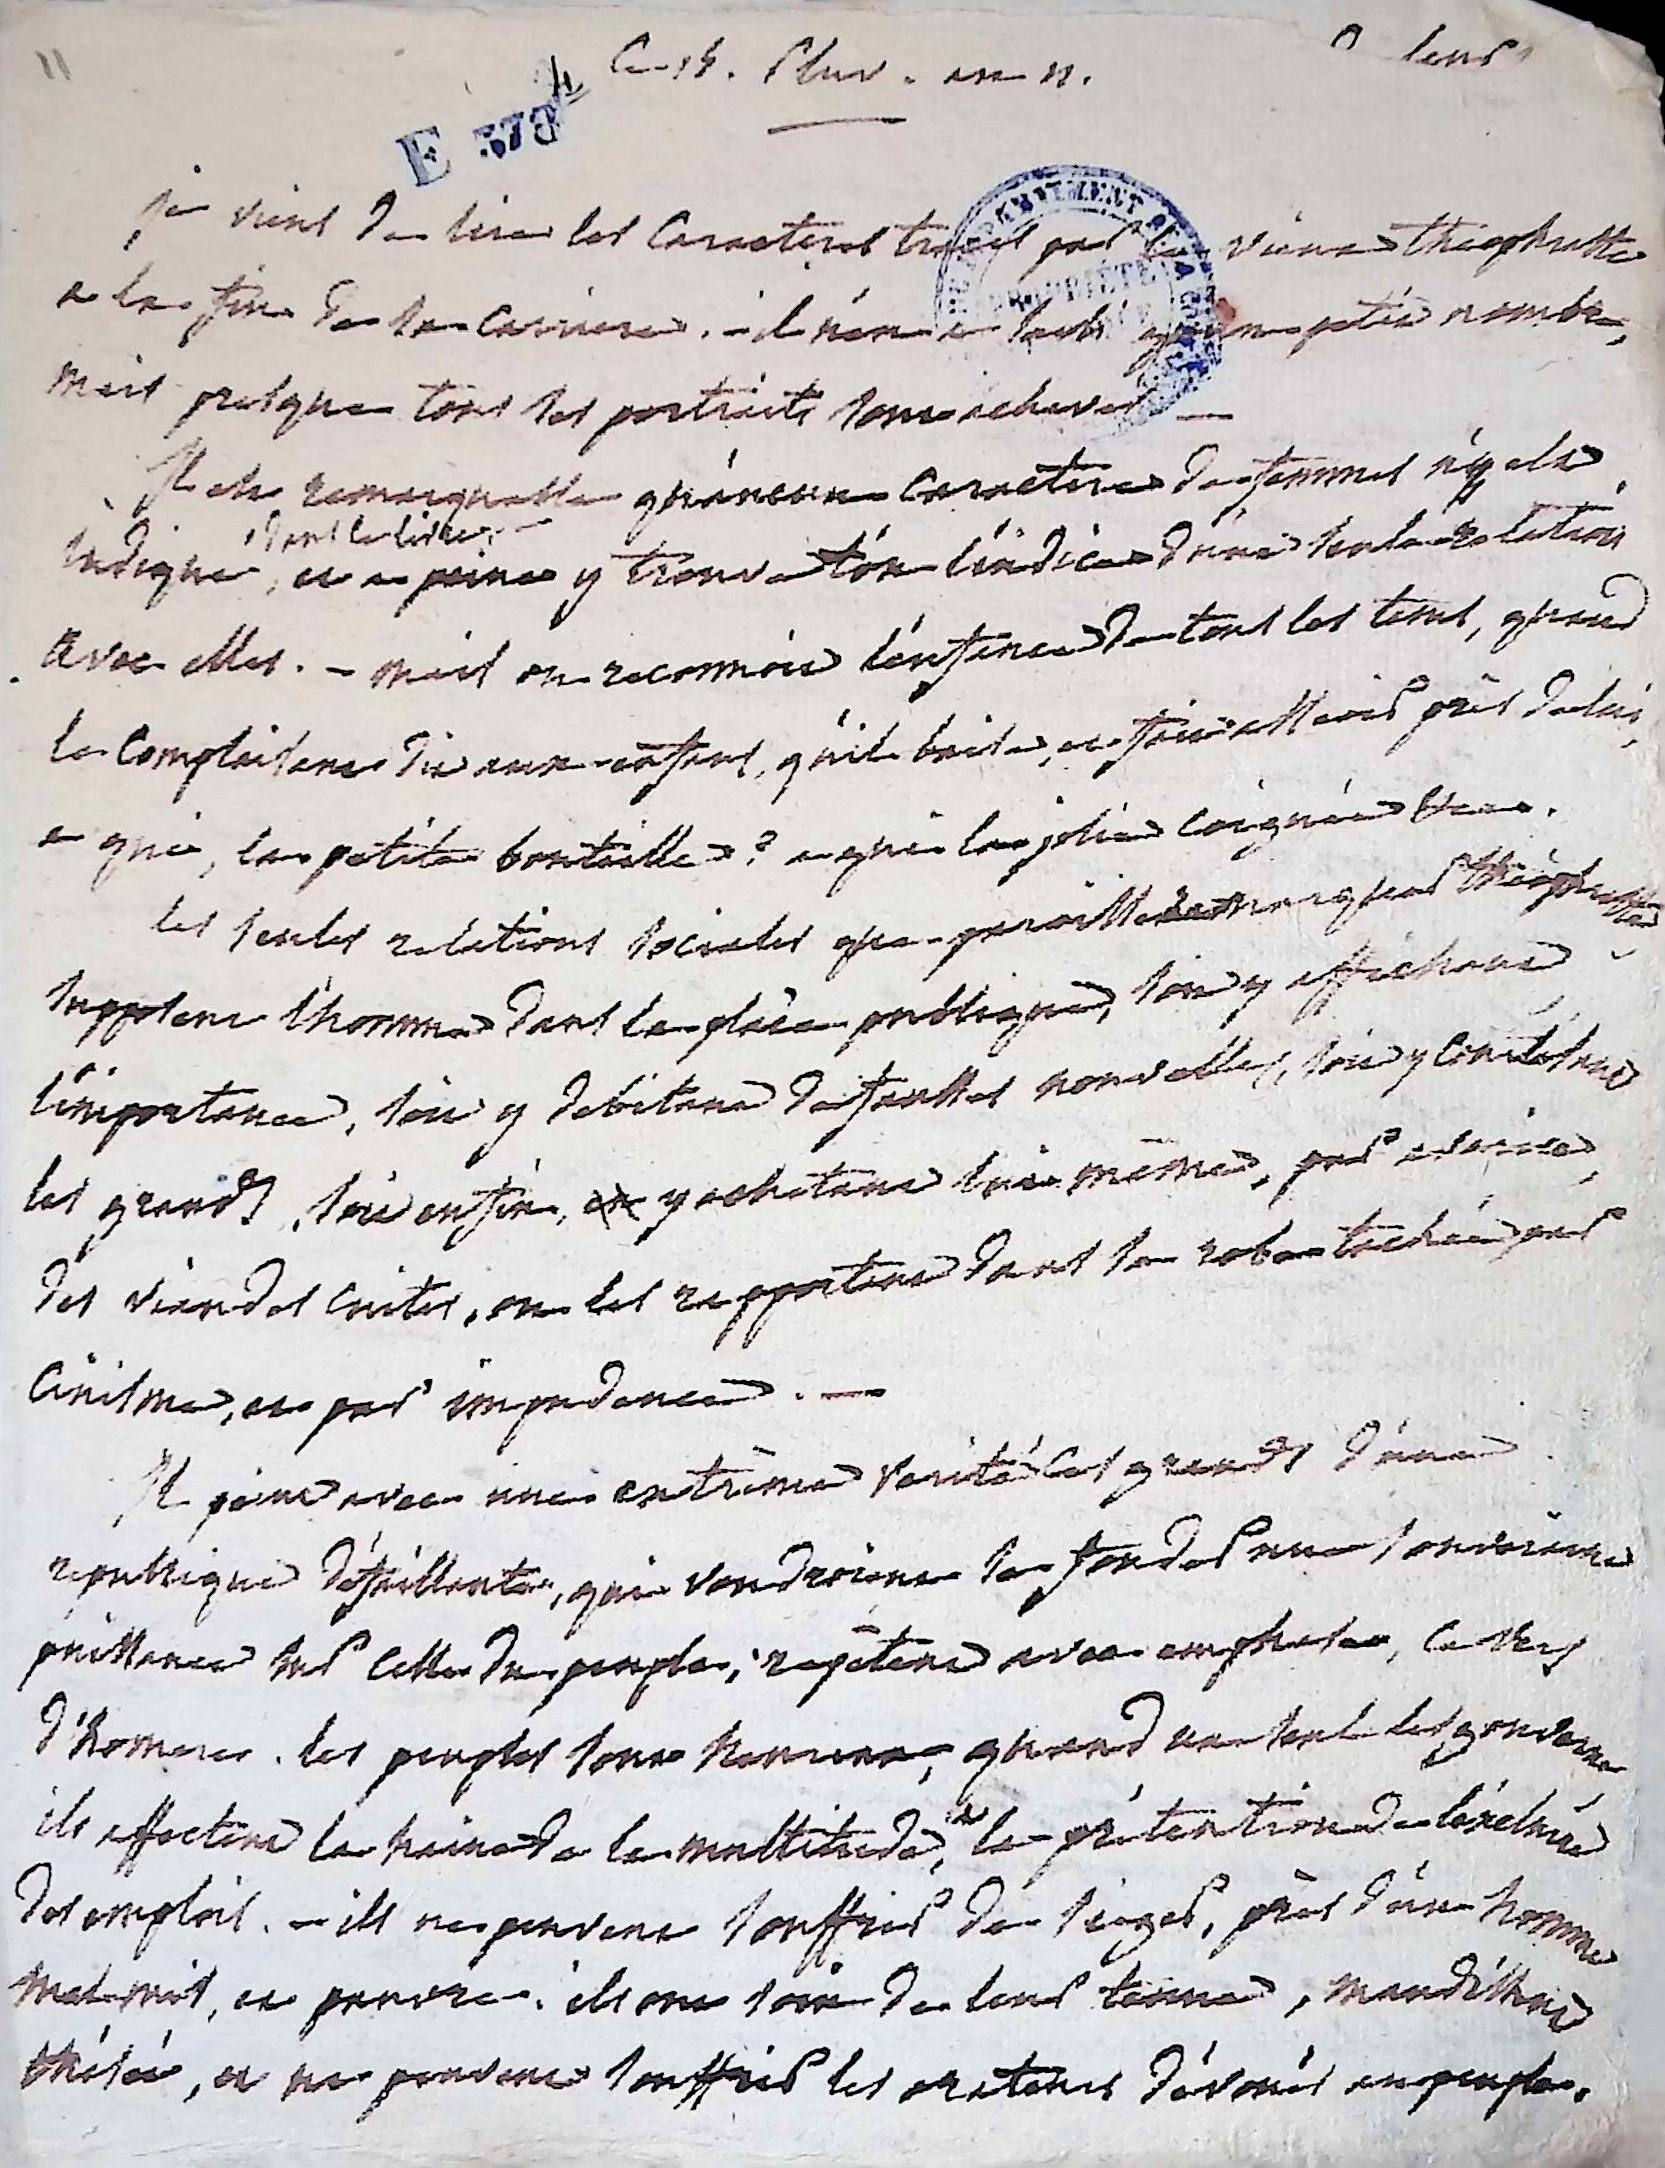 Ce 14. Pluv. an 11.
E 378
je viens de lire les Caracteres tracés par le vieux theophraste
a la fin de sa carriere. - il n'en a saisi qu'un petit nombre,
mais presque tous ses portraits sont achevés —
Il est remarquable qu'aucun caractere de femmes n'y est
indiqué, dans ce livre, et a peine y trouve t'on l'indice d'une seule relation
avec elles. - mais on reconnoit l'enfance de tous les tems, quand
le complaisant dit aux enfans, qu'il baise, et fait asseoir près de lui,
a qui, la petite bouteille? a qui la jolie coignée &c.
les seules relations sociales que paroisse marquer théophraste,
supposent l'homme dans la place publique, soit y affichant
l'importance, soit y debitant de fausses nouvelles, soit y
les grands, soit enfin, y achetant lui même, par avarice,
des viandes cuites, ou les rapportant dans sa robe tachée par
cinisme, et par impudence. —
Il peint avec une extrême verité les grands d'une
republique défaillante, qui voudroient se fonder une souveraine
puissance sur celle du peuple; répétant avec emphase, ce vers
d'homere. les peuples sont heureux, quand un seul les gouverne
ils affectent la haine de la multitude, et la prétention de l'exclure
des emplois. - ils ne peuvent souffrir de sieger, près d'un homme
mal mis, et pauvre. ils ont soin de leur tenue, maudissent
thésée, et ne peuvent souffrir les orateurs dévoués au peuple.